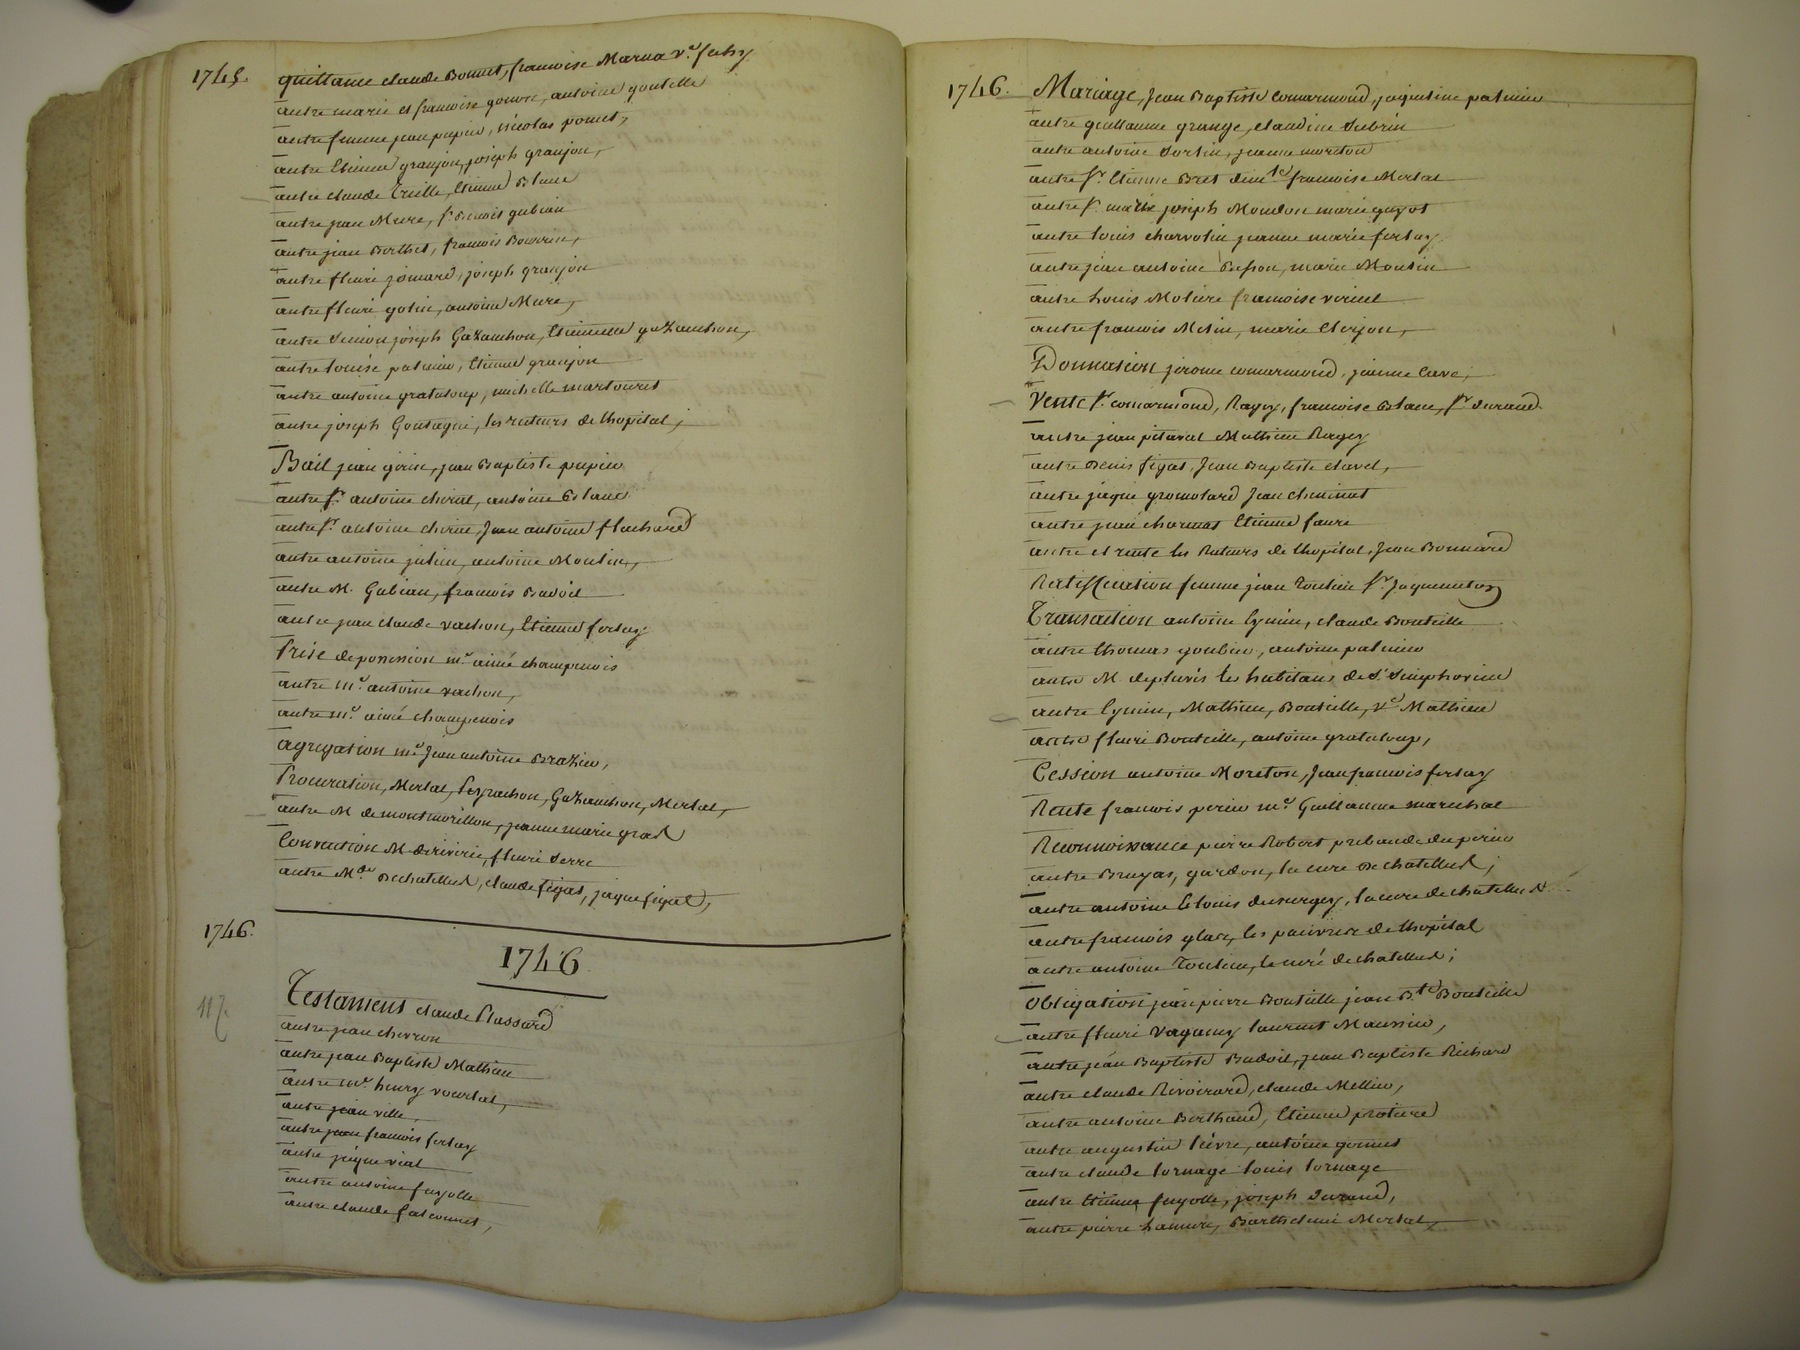 1745. quittance claude Bonnet, francoise Marna v.e fahy
autre marie et francoise gonon, antoine goutelle
autre femme jean papin, nicolas ponct,
autre Etienne granjon, joseph granjon,
autre claude Treille, Etienne Blanc
autre jean Mure, s.r Benoit gubian
autre jean Berthet, francois Bouvrin,
autre fleuri jomard, joseph granjon
autre fleuri gotin, antoine Mure,
autre Simon joseph Gazanchon, Etiennette gazanchon,
autre louise palmier, Etienne granjon
autre antoine grataloup, michelle martouret
autre joseph Goutagni, les recteurs de lhopital,
Bail jean girin, jean Baptiste papin
autre s.r antoine chirat, antoine Blanc
autre s.r antoine chirat, Jean antoine flachard
autre antoine julien, antoine Moulin,
autre M. Gubian, francois Badoil
autre jean claude vachon, Etienne fertay
Prise de possession m.e aimé champenois
autre m.e antoine vachon,
autre m.e aimé champenois
agregation m.e Jean antoine Brazier,
Procuration, Mertal, Peyrachon, Gazanchon, Mertal,
autre M de montmorillon, jeanne marie grad
Convention M. de riverie, fleuri Serre
autre M.de De chatelluel, claude figat, jaque figat,
1746.
1746
117
Testament claude Plassard
autre jean chevron
autre jean Baptiste Mathieu
autre m.e henry vourlat,
autre jean ville,
autre jean francois fertay
autre jaque vial
autre antoine fayolle
autre claude falconnet,
1746. Mariage, Jean Baptiste Comarmond, jaquetine palmier
autre guillaume grange, claudine Subrin
autre antoine Sortin, jeanne moreton
autre s.r Etienne Bret dem.lle francoise Mertal
autre s.r joseph Moudon marie guyot
autre louis charvolin jeanne marie fertay
autre jean antoine Besson, marie Moulin
autre Louis Moliere francoise verinet
autre francois Metin, marie Clerjon,
Donnation jerome comarmond, jeanne Cave,
Vente s.r comarmond, Ragey, francoise Blanc, s.r durand.
autre jean pitaval Mathieu Ragey
autre Denis figat, Jean Baptiste clavel,
autre jaque gromolard Jean cheminat
autre jean charmat Etienne faure
autre et rente les Recteurs de lhopital, Jean Bonnard
Ratiffication femme jean Toulieu s.r Jaquemetay
Transaction antoine Eymin, claude Bouteille
autre thomas goubier, antoine palmier
autre M. depluvis les habitans de St Simphorien
autre Eymin, Mathieu, Bouteille, v.e Mathieu
autre fleuri Bouteille, antoine grataloup,
Cession antoine Moreton, Jean francois fertay
Rente francois perier m.e Guillaume marechal
Reconnoissance pierre Robert prebande du perier
autre Bruyas, gardon, la cure De chatelluel,
autre antoine et louis dusurgey, la cure de chatelluel
autre francois glas, les pauvres de lhopital
autre antoine Toulieu, le curé de chatelluel,
Obligation jean pierre Bouteille jean B.te Bouteille
autre fleuri Vaganey laurent Maunier,
autre jean Baptiste Badoil, jean Baptiste Richard
autre claude Rivoirard, claude Mellier,
autre antoine Berthaud, Etienne protiere
autre augustin lièvre, antoine gonnet
autre claude tornage louis tornage
autre Etienne fayolle, joseph Durand,
autre pierre Lamure, Barthelemi Mertal,